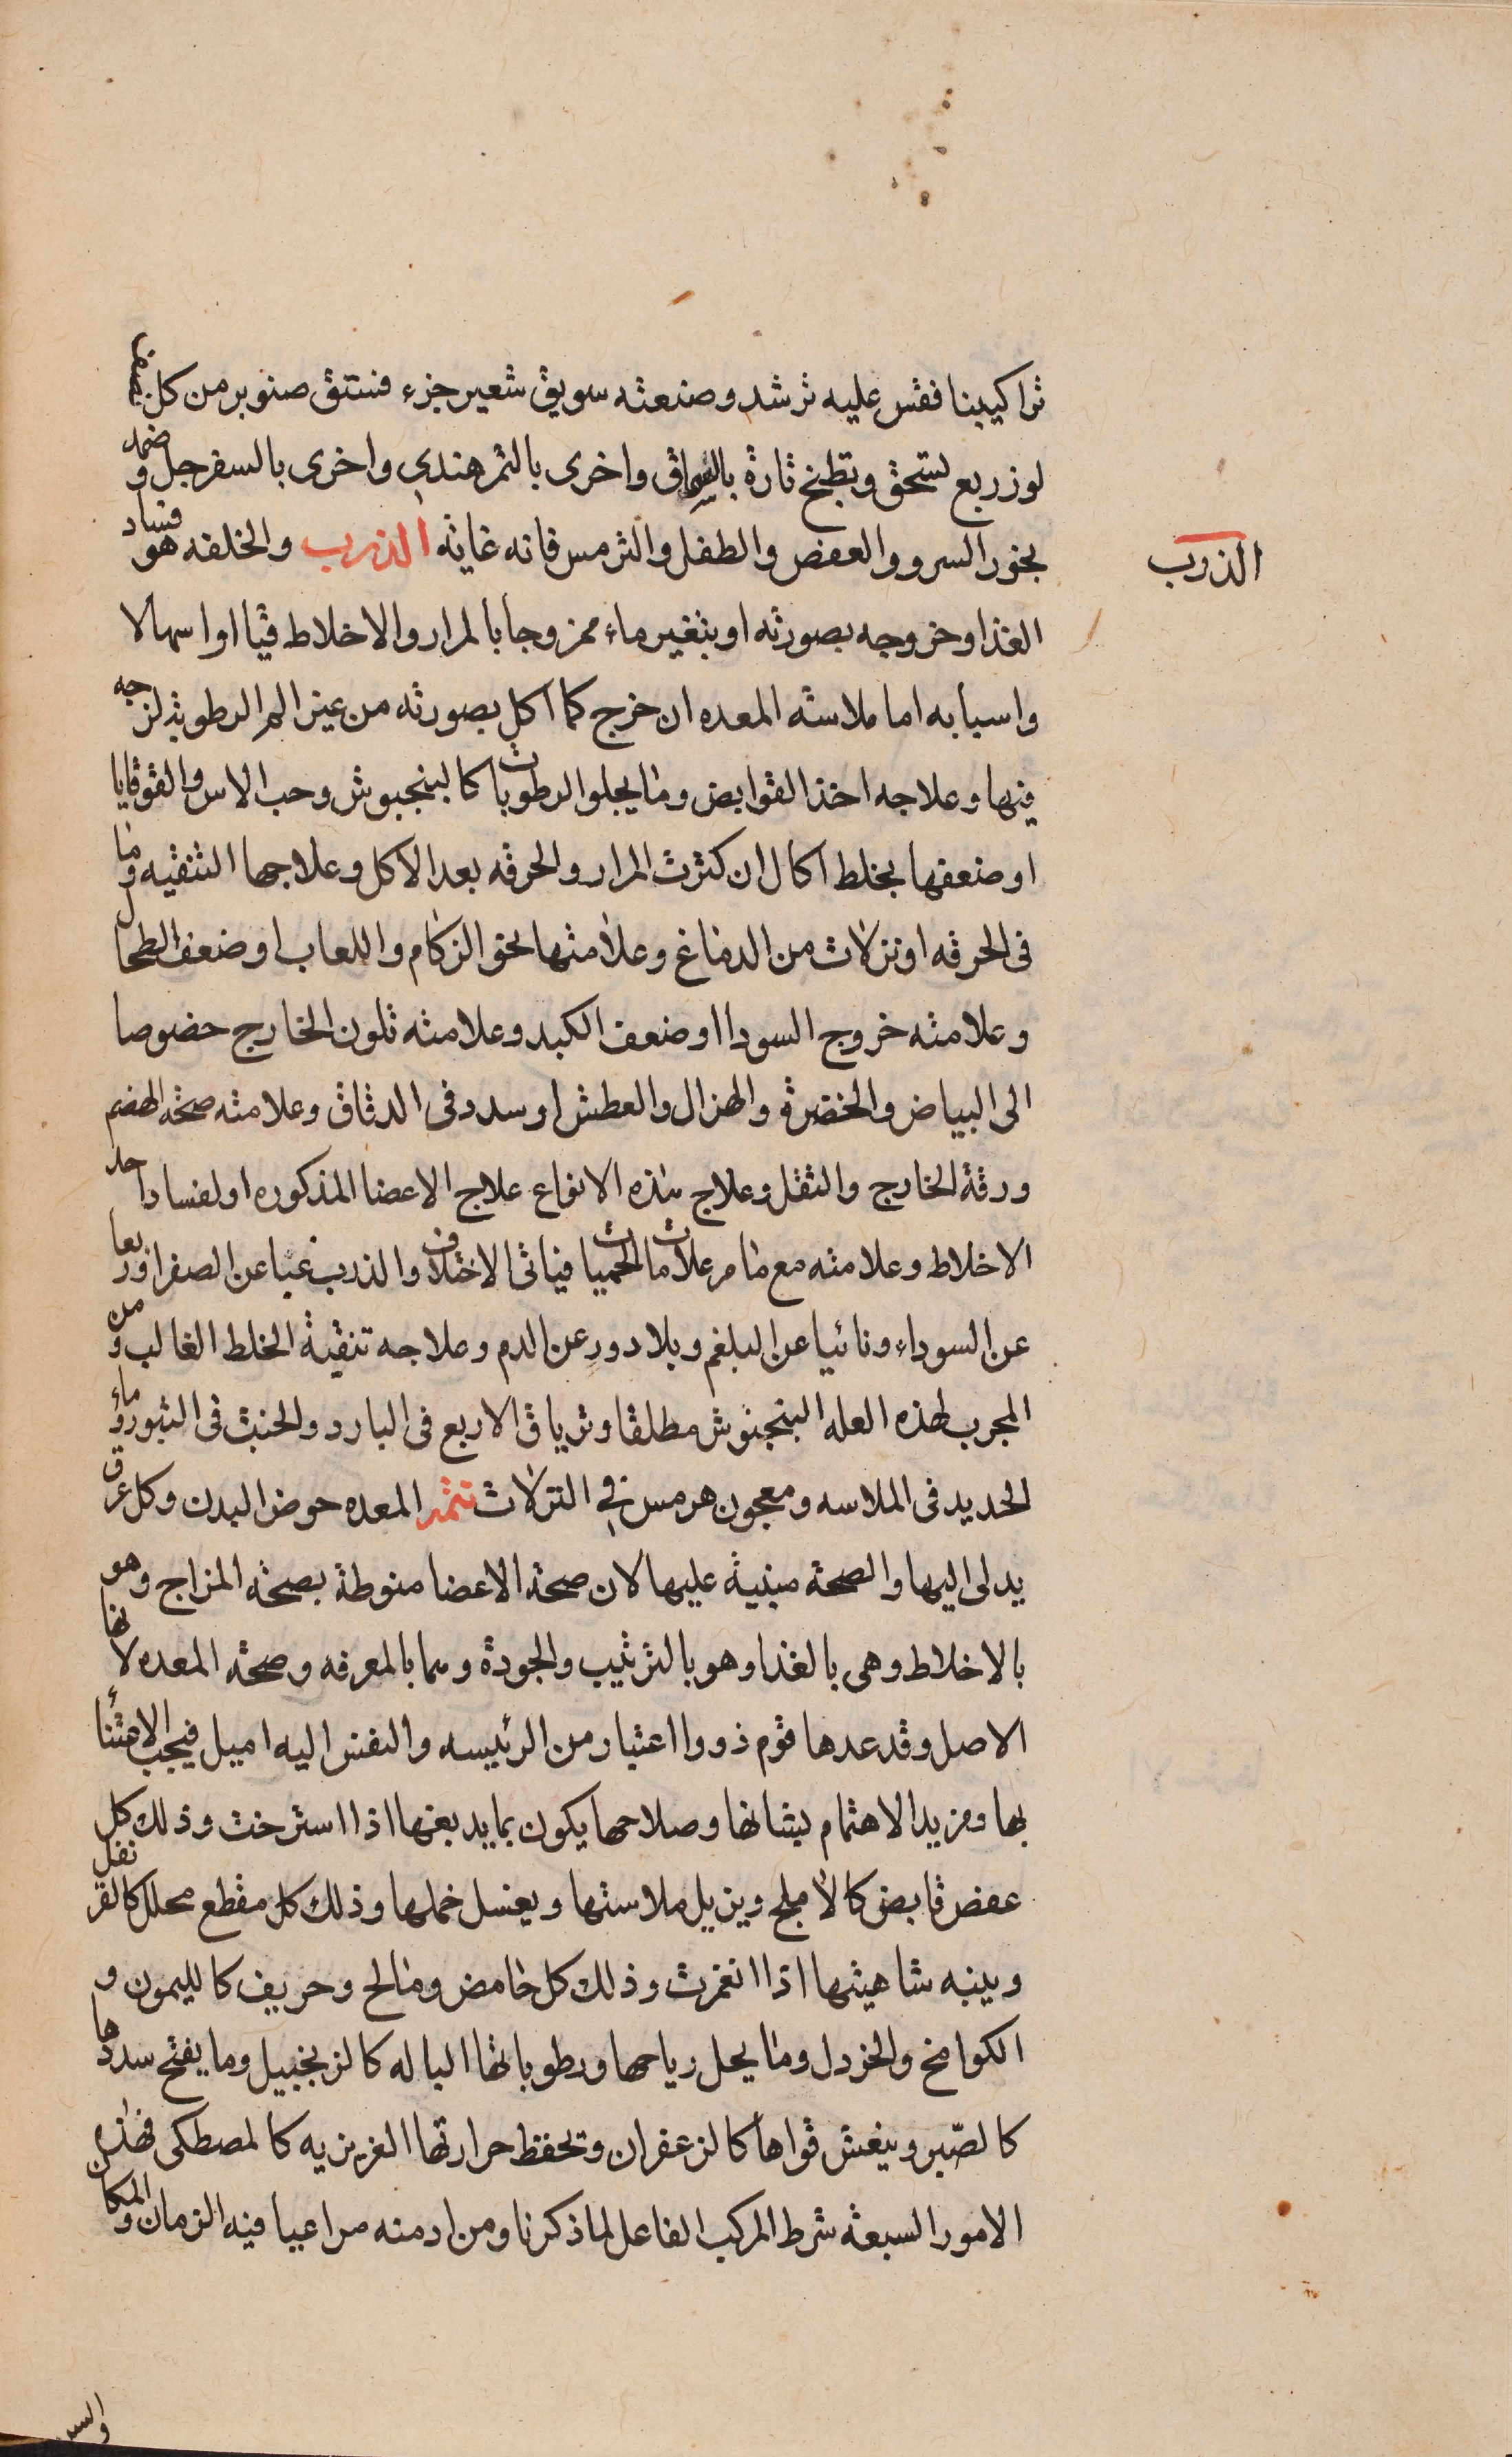 تراكيبنا فقس عليه ترشد وصنعته سويق شعير جزء فستق صنوبر من كل نصف
لوز ربع تسحق وتطبخ تارة بالسماق واخرى بالتمر هندي واخرى بالسفرجل وضمد
بخور السرو والعفص والطفل والترمس فانه غايته الذرب والخلفه هو فساد
الذرب
الغذا وخروجه بصورته او بتغير ماء ممزوجا بالمرار والاخلاط قيا او اسهالا
واسبابه اما ملاسته المعده ان خرج كما اكل بصورته من غير الم الرطوبة لزجه
فيها وعلاجه اخذ القوابض وما يجلو الرطوبات كالبنجبوش وحب الاس والقوقايا
او ضعفها بخلط اكال ان كثرت المرار والحرقه بعد الاكل وعلاجها التنقيه وما
فى الحرقه او نزلات من الدماغ وعلامتها نحو الزكام واللعاب او ضعف الطحال
وعلامته خروج السودا او ضعف الكبد وعلامته تلون الخارج خصوصا
الى البياض والخضرة والهزال والعطش او سدد فى الدقاق وعلامته صحة الهضم
ورقة الخارج والثقل وعلاج هذه الانواع علاج الاعضا المذكوره او لفساد احد
الاخلاط وعلامته مع ما مر علامات الحميات فياتى الاختلاف والذرب غبا عن الصفرا وربعا
عن السوداء ونائبا عن البلغم وبلا دور عن الدم وعلاجه تنقية الخلط الغالب ومن
المجرب لهذه العله البنجنوش مطلقا وترياق الاربع فى البارد والخبث فى البثور وماء
الحديد فى الملاسه ومعجون هرمس في النزلات تتمه المعده حوض البدن وكل عرق
يدلى اليها والصحة مبنية عليها لان صحة الاعضا منوطة بصحة المزاج وهو
بالاخلاط وهى بالغذا وهو بالترتيب والجودة وهما بالمعرفه وصحة المعده لانها
الاصل وقد عدها قوم ذووا اعتبار من الرئيسه والنفس اليه اميل فيجب الاعتنا
بها ومزيد الاهتمام بشانها وصلاحها يكون بما يدبغها اذا استرخت وذلك كل
عفص قابض كالاملج ويزيل ملاستها ويغسل خملها وذلك كل مقطع محلل كالقرنفل
وينبه شاهيتها اذا انغمرت وذلك كل حامض ومالح وحريف كالليمون و
الكوامخ والخردل وما يحل رياحها ورطوباتها الباله كالزنجبيل وما يفتح سددها
كالصّبر وينعش قواها كالزعفران وتحفظ حرارتها الغريزيه كالمصطكى فهذه
الامور السبعة شرط المركب الفاعل لما ذكرنا ومن ادمنه مراعيا فيه الزمان والمكان
والسن